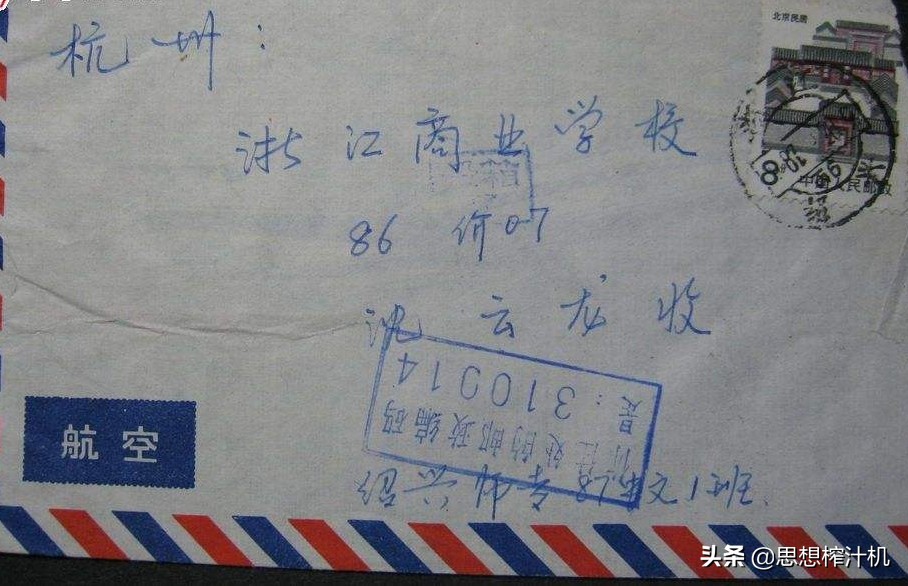 北京民居
中国人民邮政
杭州：
浙江商业学校
86 价07
沈云龙收
所在处的邮政编码
是：310014
绍兴师专 文1班
航空
头条 @思想榨汁机